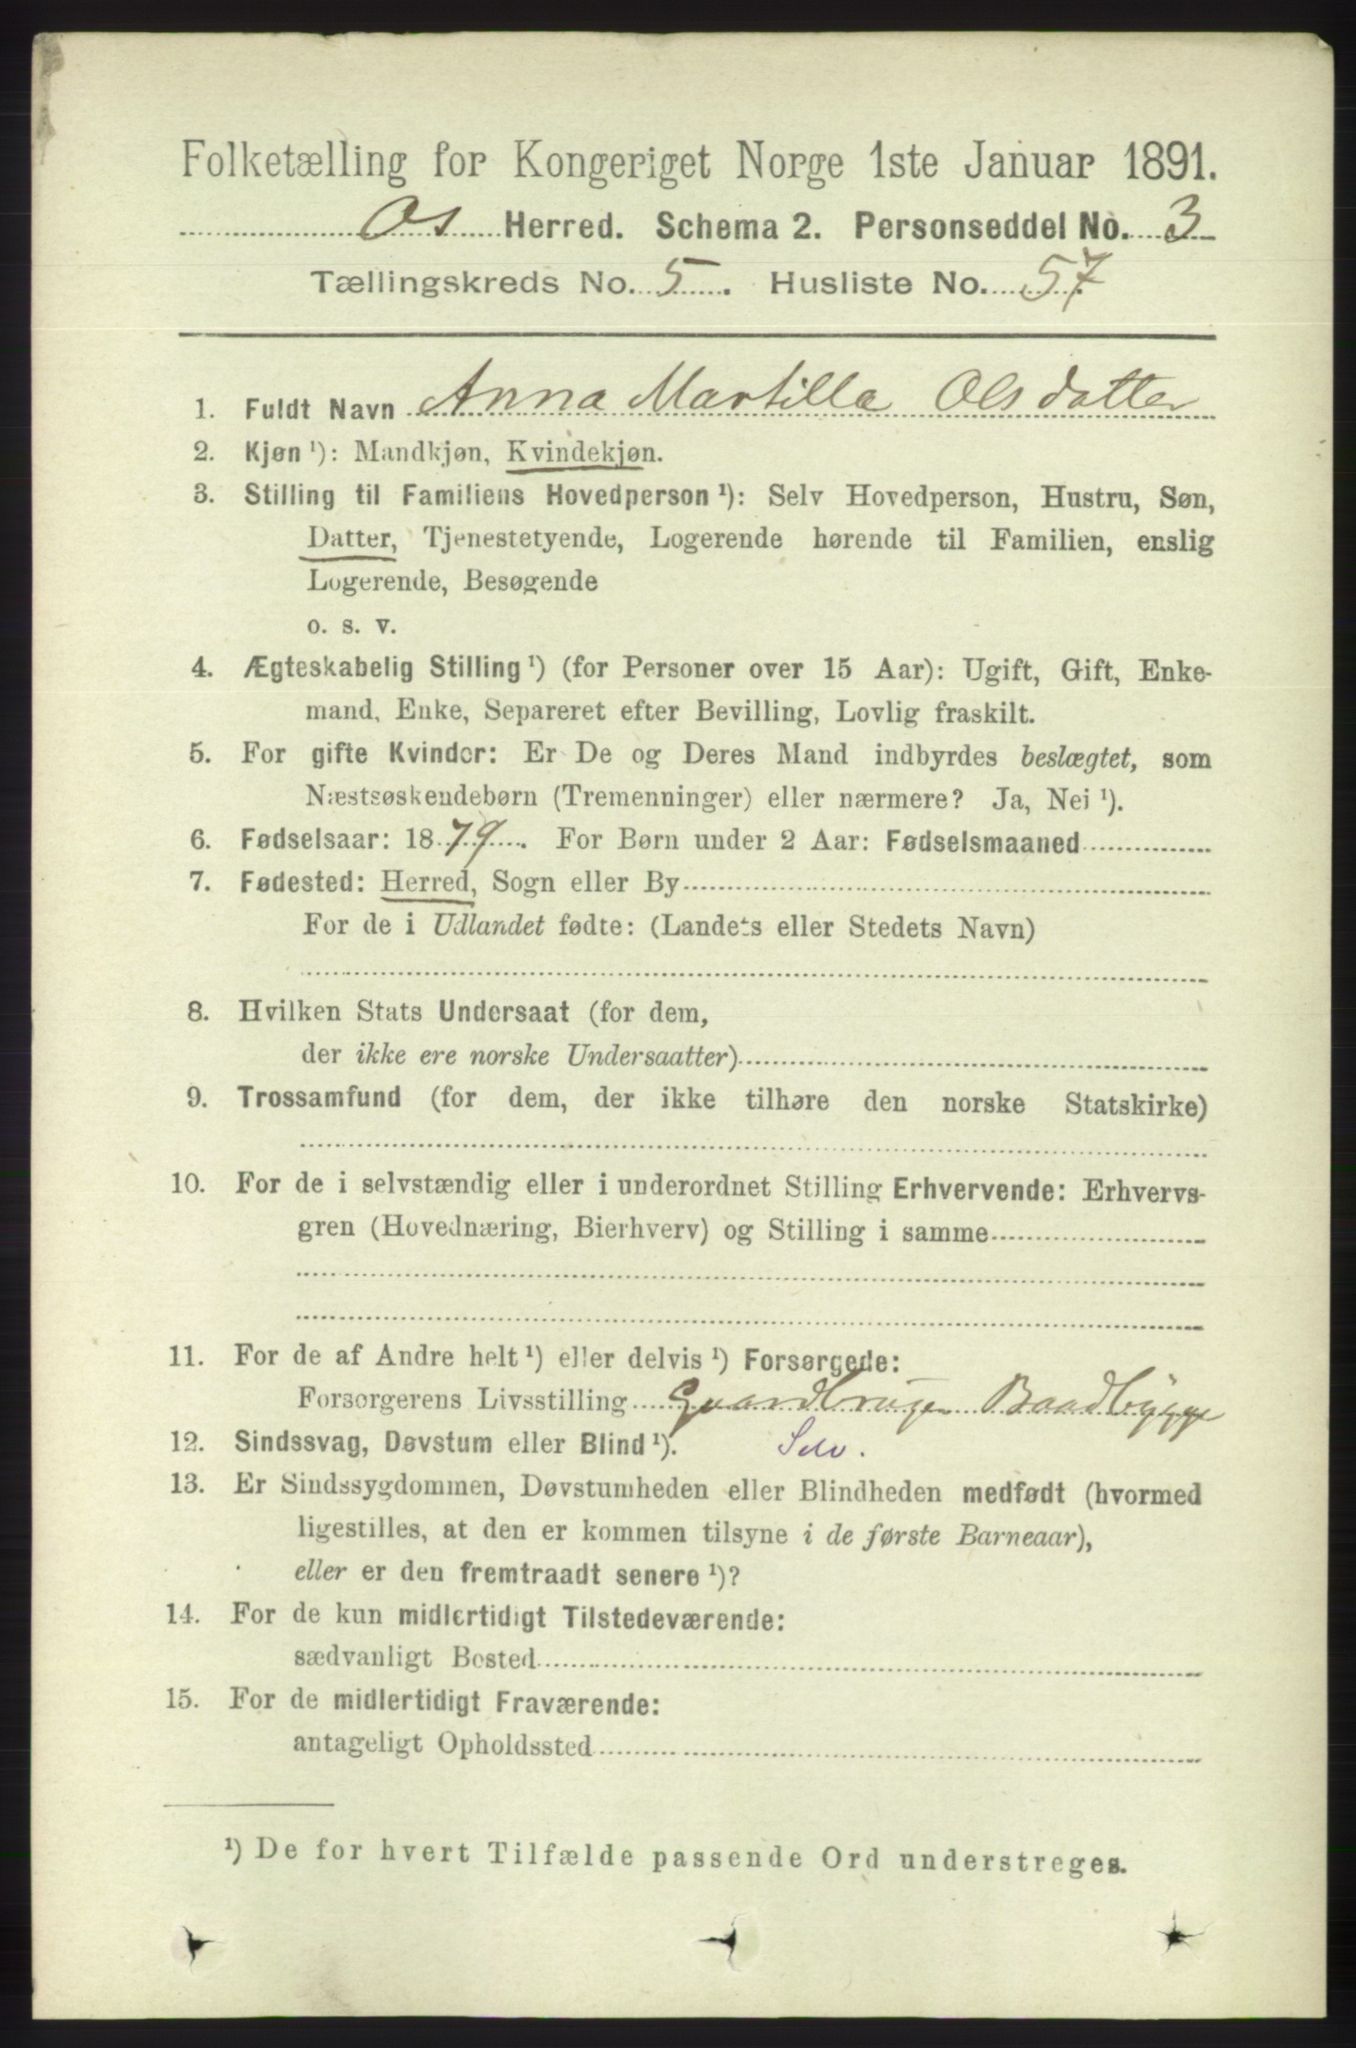 Folketælling for Kongeriget Norge 1ste Januar 1891.
Os Herred. Schema 2. Personseddel No. 3
Tællingskreds No. 5. Husliste No. 57
1. Fuldt Navn Anna Martilla Olsdatter
2. Kjøn ¹): Mandkjøn, Kvindekjøn.
3. Stilling til Familiens Hovedperson ¹): Selv Hovedperson, Hustru, Søn,
Datter, Tjenestetyende, Logerende hørende til Familien, enslig
Logerende, Besøgende
o. s. v.
4. Ægteskabelig Stilling ¹) (for Personer over 15 Aar): Ugift, Gift, Enke-
mand, Enke, Separeret efter Bevilling, Lovlig fraskilt.
5. For gifte Kvinder: Er De og Deres Mand indbyrdes beslægtet, som
Næstsøskendebørn (Tremenninger) eller nærmere? Ja, Nei ¹).
6. Fødselsaar: 1879. For Børn under 2 Aar: Fødselsmaaned
7. Fødested: Herred, Sogn eller By
For de i Udlandet fødte: (Landets eller Stedets Navn)
8. Hvilken Stats Undersaat (for dem,
der ikke ere norske Undersaatter)
9. Trossamfund (for dem, der ikke tilhøre den norske Statskirke)
10. For de i selvstændig eller i underordnet Stilling Erhvervende: Erhvervs-
gren (Hovednæring, Bierhverv) og Stilling i samme
11. For de af Andre helt ¹) eller delvis ¹) Forsørgede:
Forsørgerens Livsstilling Gaardbruger Baadbygge
12. Sindssvag, Døvstum eller Blind ¹). Selv.
13. Er Sindssygdommen, Døvstumheden eller Blindheden medfødt (hvormed
ligestilles, at den er kommen tilsyne i de første Barneaar),
eller er den fremtraadt senere ¹)?
14. For de kun midlertidigt Tilstedeværende:
sædvanligt Bosted
15. For de midlertidigt Fraværende:
antageligt Opholdssted
¹) De for hvert Tilfælde passende Ord understreges.